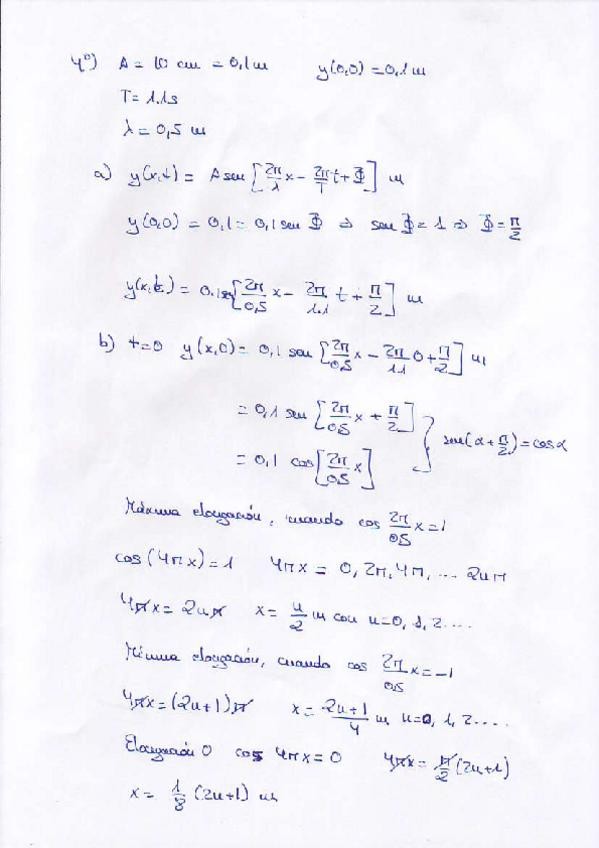 4º) A = 10 cm = 0,1 m y(0,0) = 0,1 m
T = 1.1s
λ = 0,5 m
a) y(x,t) = A sen [2π/λ x − 2π/T t + Φ] m
y(0,0) = 0,1 = 0,1 sen Φ ⇒ sen Φ = 1 ⇒ Φ = π/2
y(x,t) = 0,1 sen [2π/0,5 x − 2π/1.1 t + π/2] m
b) t=0 y(x,0) = 0,1 sen [2π/0,5 x − 2π/1.1 0 + π/2] m
= 0,1 sen [2π/0,5 x + π/2] } sen(α + π/2) = cos α
= 0,1 cos [2π/0,5 x]
Máxima elongación, cuando cos 2π/0,5 x = 1
cos (4πx) = 1 4πx = 0, 2π, 4π, ... 2nπ
4πx = 2nπ x = n/2 m con n=0, 1, 2....
Mínima elongación, cuando cos 2π/0,5 x = −1
4πx = (2n+1)π x = 2n+1/4 m n=0, 1, 2....
Elongación 0 cos 4πx = 0 4πx = π/2 (2n+1)
x = 1/8 (2n+1) m